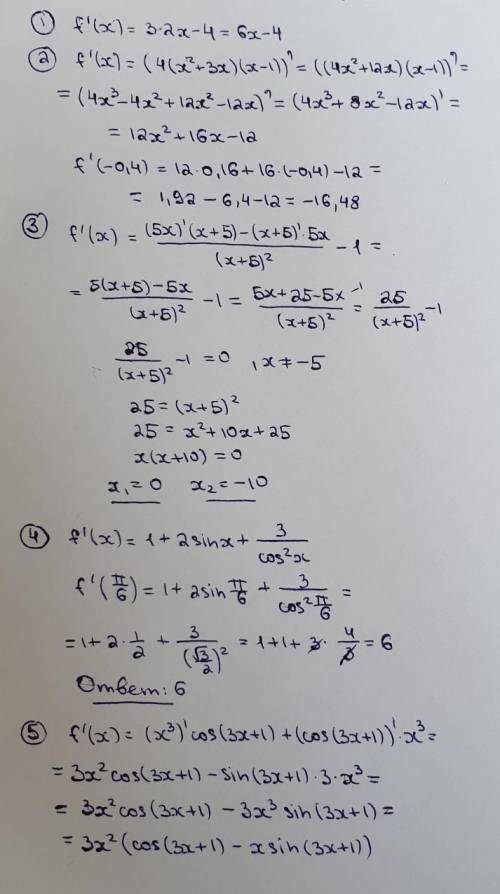 ① f'(x) = 3·2x-4 = 6x-4
② f'(x) = (4(x²+3x)(x-1))' = ((4x²+12x)(x-1))' =
= (4x³-4x²+12x²-12x)' = (4x³+8x²-12x)' =
= 12x²+16x-12
f'(-0,4) = 12·0,16+16·(-0,4)-12 =
= 1,92-6,4-12 = -16,48
③ f'(x) = ((5x)'(x+5)-(x+5)'·5x)/(x+5)² - 1 =
= (5(x+5)-5x)/(x+5)² - 1 = (5x+25-5x)/(x+5)² -1 = 25/(x+5)² - 1
25/(x+5)² - 1 = 0 , x ≠ -5
25 = (x+5)²
25 = x²+10x+25
x(x+10) = 0
x₁ = 0 x₂ = -10
④ f'(x) = 1+2sinx+3/cos²x
f'(π/6) = 1+2sin π/6 + 3/cos² π/6 =
= 1+2·1/2 + 3/(√3/2)² = 1+1+3·4/3 = 6
Ответ: 6
⑤ f'(x) = (x³)'cos(3x+1)+(cos(3x+1))'·x³ =
= 3x²cos(3x+1) - sin(3x+1)·3·x³ =
= 3x²cos(3x+1) - 3x³sin(3x+1) =
= 3x²(cos(3x+1) - xsin(3x+1))